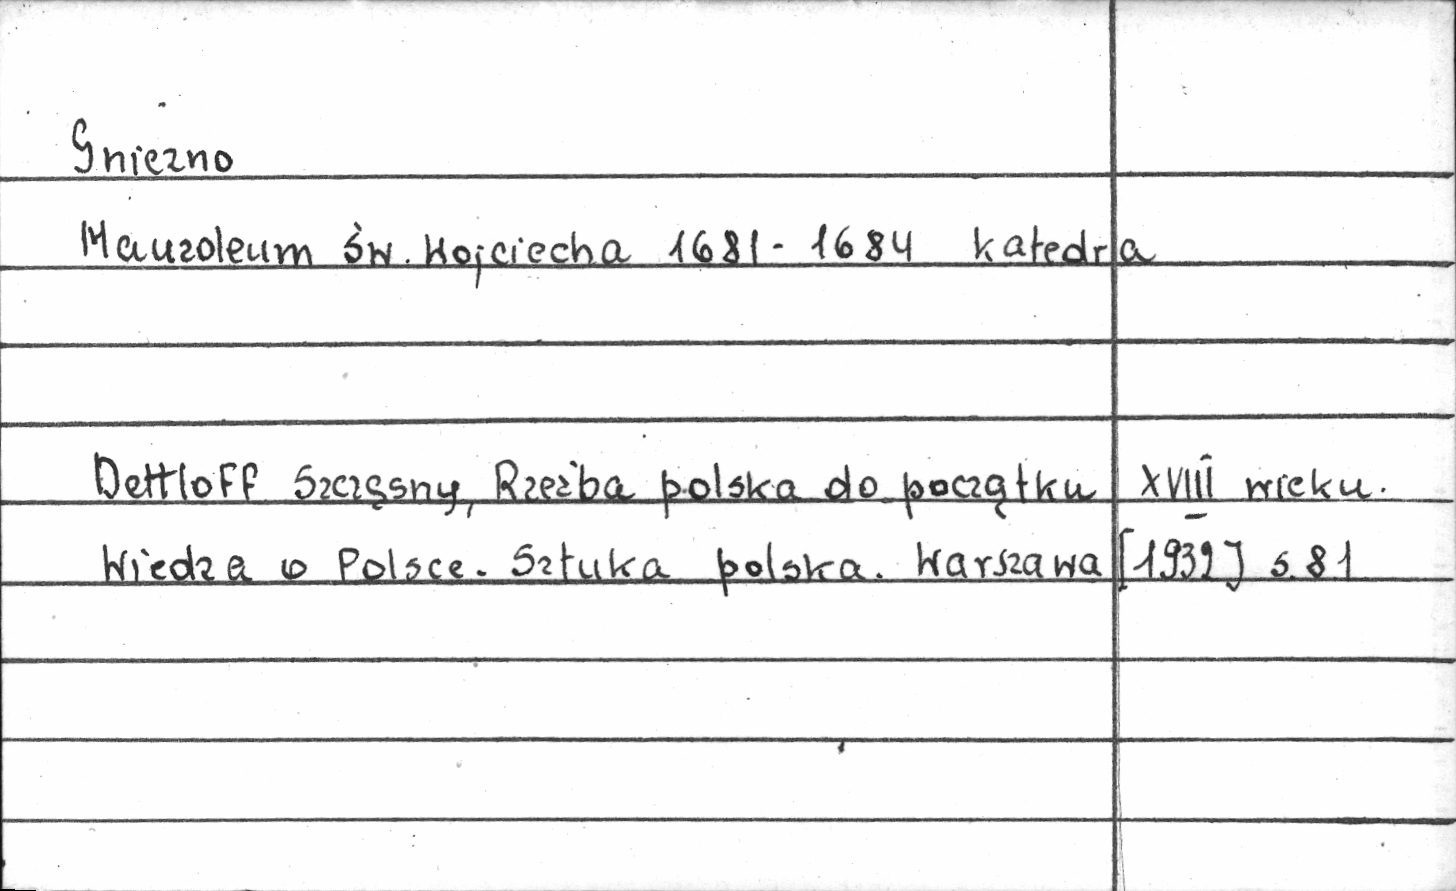 Gniezno
Mauzoleum Św. Wojciecha 1681-1684 katedra
Dettloff Szczęsny, Rzeźba polska do początku XVIII wieku.
Wiedza o Polsce. Sztuka polska. Warszawa [1932] s. 81